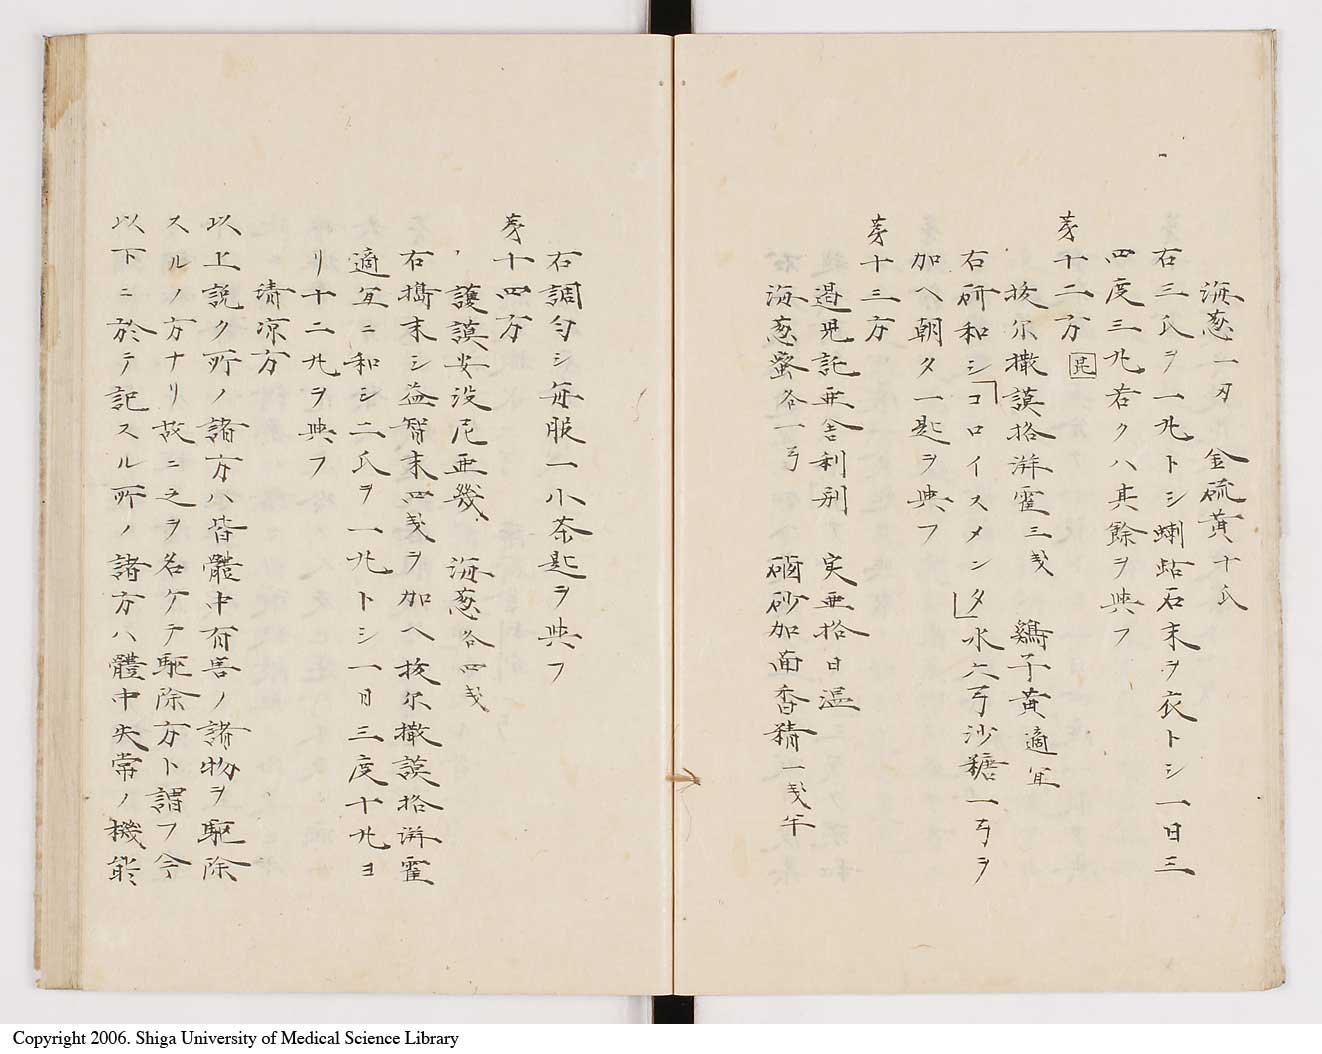 海葱一刄　金硫黄十氏
右三氏ヲ一丸トシ蝲蛄石末ヲ衣トシ一日三
四度三丸若クハ其餘ヲ與フ
第十二方　昆
抜尓撒謨格湃霍三戔　鷄子黄適宜
右研和シ「コロイスメンタ」水六弓沙糖一弓ヲ
加ヘ朝夕一匙ヲ與フ
第十三方
遏児託亜舎利別　実亜拾日温
海葱蜜各一弓　硇砂加茴香精一戔半
右調匀シ毎服一小茶匙ヲ與フ
第十四方
護謨安没尼亜幾　海葱各四戔
右擣末シ益智末四戔ヲ加ヘ抜尓撒謨格湃霍
適宜ニ和シ二氏ヲ一丸トシ一日三度十丸ヨ
リ十二丸ヲ與フ
清凉方
以上説ク所ノ諸方ハ皆體中有害ノ諸物ヲ駆除
スルノ方ナリ故ニ之ヲ名ケテ駆除方ト謂フ今
以下ニ於テ記スル所ノ諸方ハ體中失常ノ機能
Copyright 2006. Shiga University of Medical Science Library